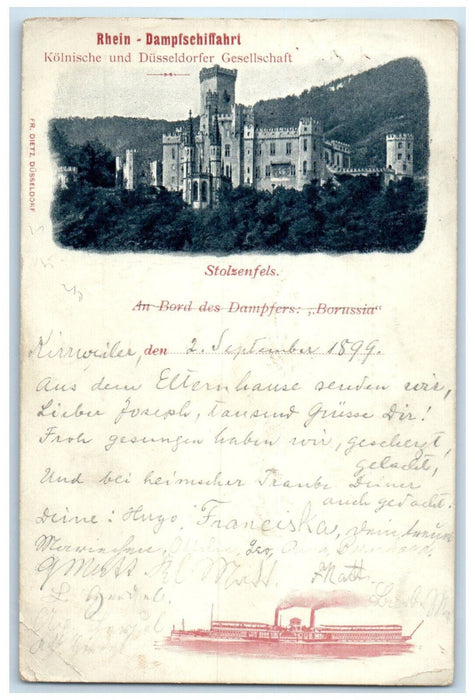 Rhein - Dampfschiffahrt
Kölnische und Düsseldorfer Gesellschaft
FR. DIETZ, DÜSSELDORF
Stolzenfels.
An Bord des Dampfers: „Borussia“
Kirrweiler, den 2. September 1899.
Aus dem Elternhause senden wir,
Lieber Joseph, tausend Grüsse Dir!
Froh gesungen haben wir, gescherzt,
gelacht,
Und bei heimscher Traube Deiner
auch gedacht.
Deine: Hugo, Franciska, Dein treues
Mariechen,
G Matt Matt. Matt.